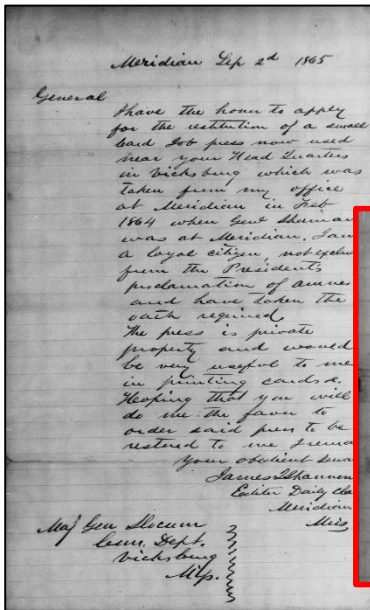 Meridian Sep 2d 1865
General
I have the honor to apply
for the restitution of a small
Card Job press now used
near your Head Quarters
in Vicksburg which was
taken from my office
at Meridian in Feb
1864 when Genl Sherman
was at Meridian. I am
a loyal citizen, not exclu
from the Presidents
proclamation of amnes
and have taken the
oath required.
The press is private
property and would
be very useful to me
in printing cards &.
Hoping that you will
do me the favor to
order said press to be
restored to me I rema
your obedient serva
James Shannon
Editor Daily Cla
Meridian
Miss
Maj Gen Slocum
Com. Dept.
Vicksburg
Miss.